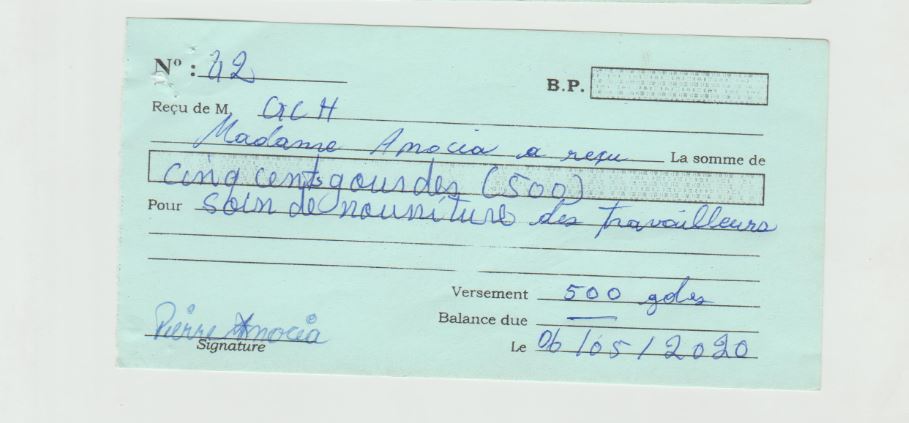 Nº : 42
B.P.
Reçu de M GCH
Madame Amocia a reçu La somme de
cinq cents gourdes (500)
Pour soin de nourriture des travailleurs
Versement 500 gdes
Balance due —
Pierre Amocia
Signature
Le 06/05/2020